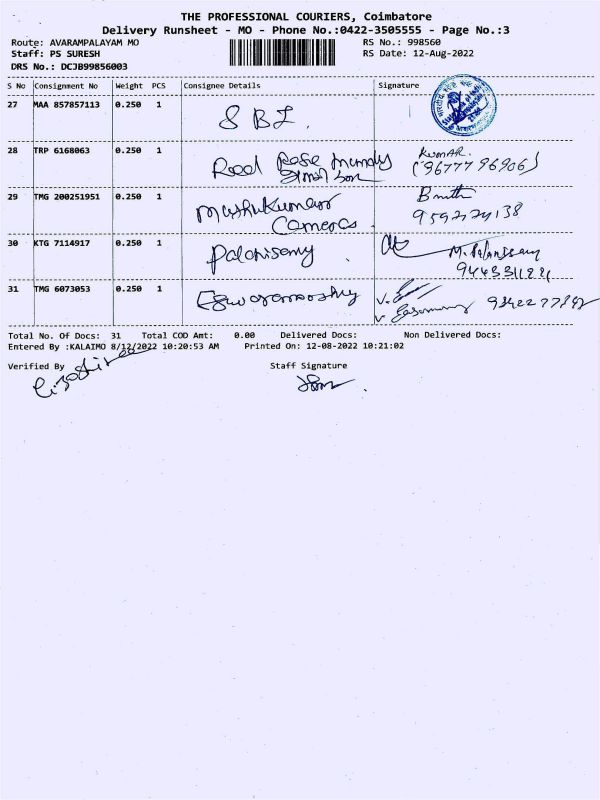 THE PROFESSIONAL COURIERS, Coimbatore
Delivery Runsheet - MO - Phone No.:0422-3505555 - Page No.:3
Route: AVARAMPALAYAM MO RS No.: 998560
Staff: PS SURESH RS Date: 12-Aug-2022
DRS No.: DCJB99856003
S No Consignment No Weight PCS Consignee Details Signature
27 MAA 857857113 0.250 1 SBI.
28 TRP 6168063 0.250 1 Rose KUMAR.
(9677796906)
29 TMG 200251951 0.250 1 Muthukumar
Cameras
30 KTG 7114917 0.250 1 Palanisamy . M. Palanisamy
31 TMG 6073053 0.250 1
Total No. Of Docs: 31 Total COD Amt: 0.00 Delivered Docs: Non Delivered Docs:
Entered By :KALAIMO 8/12/2022 10:20:53 AM Printed On: 12-08-2022 10:21:02
Verified By Staff Signature